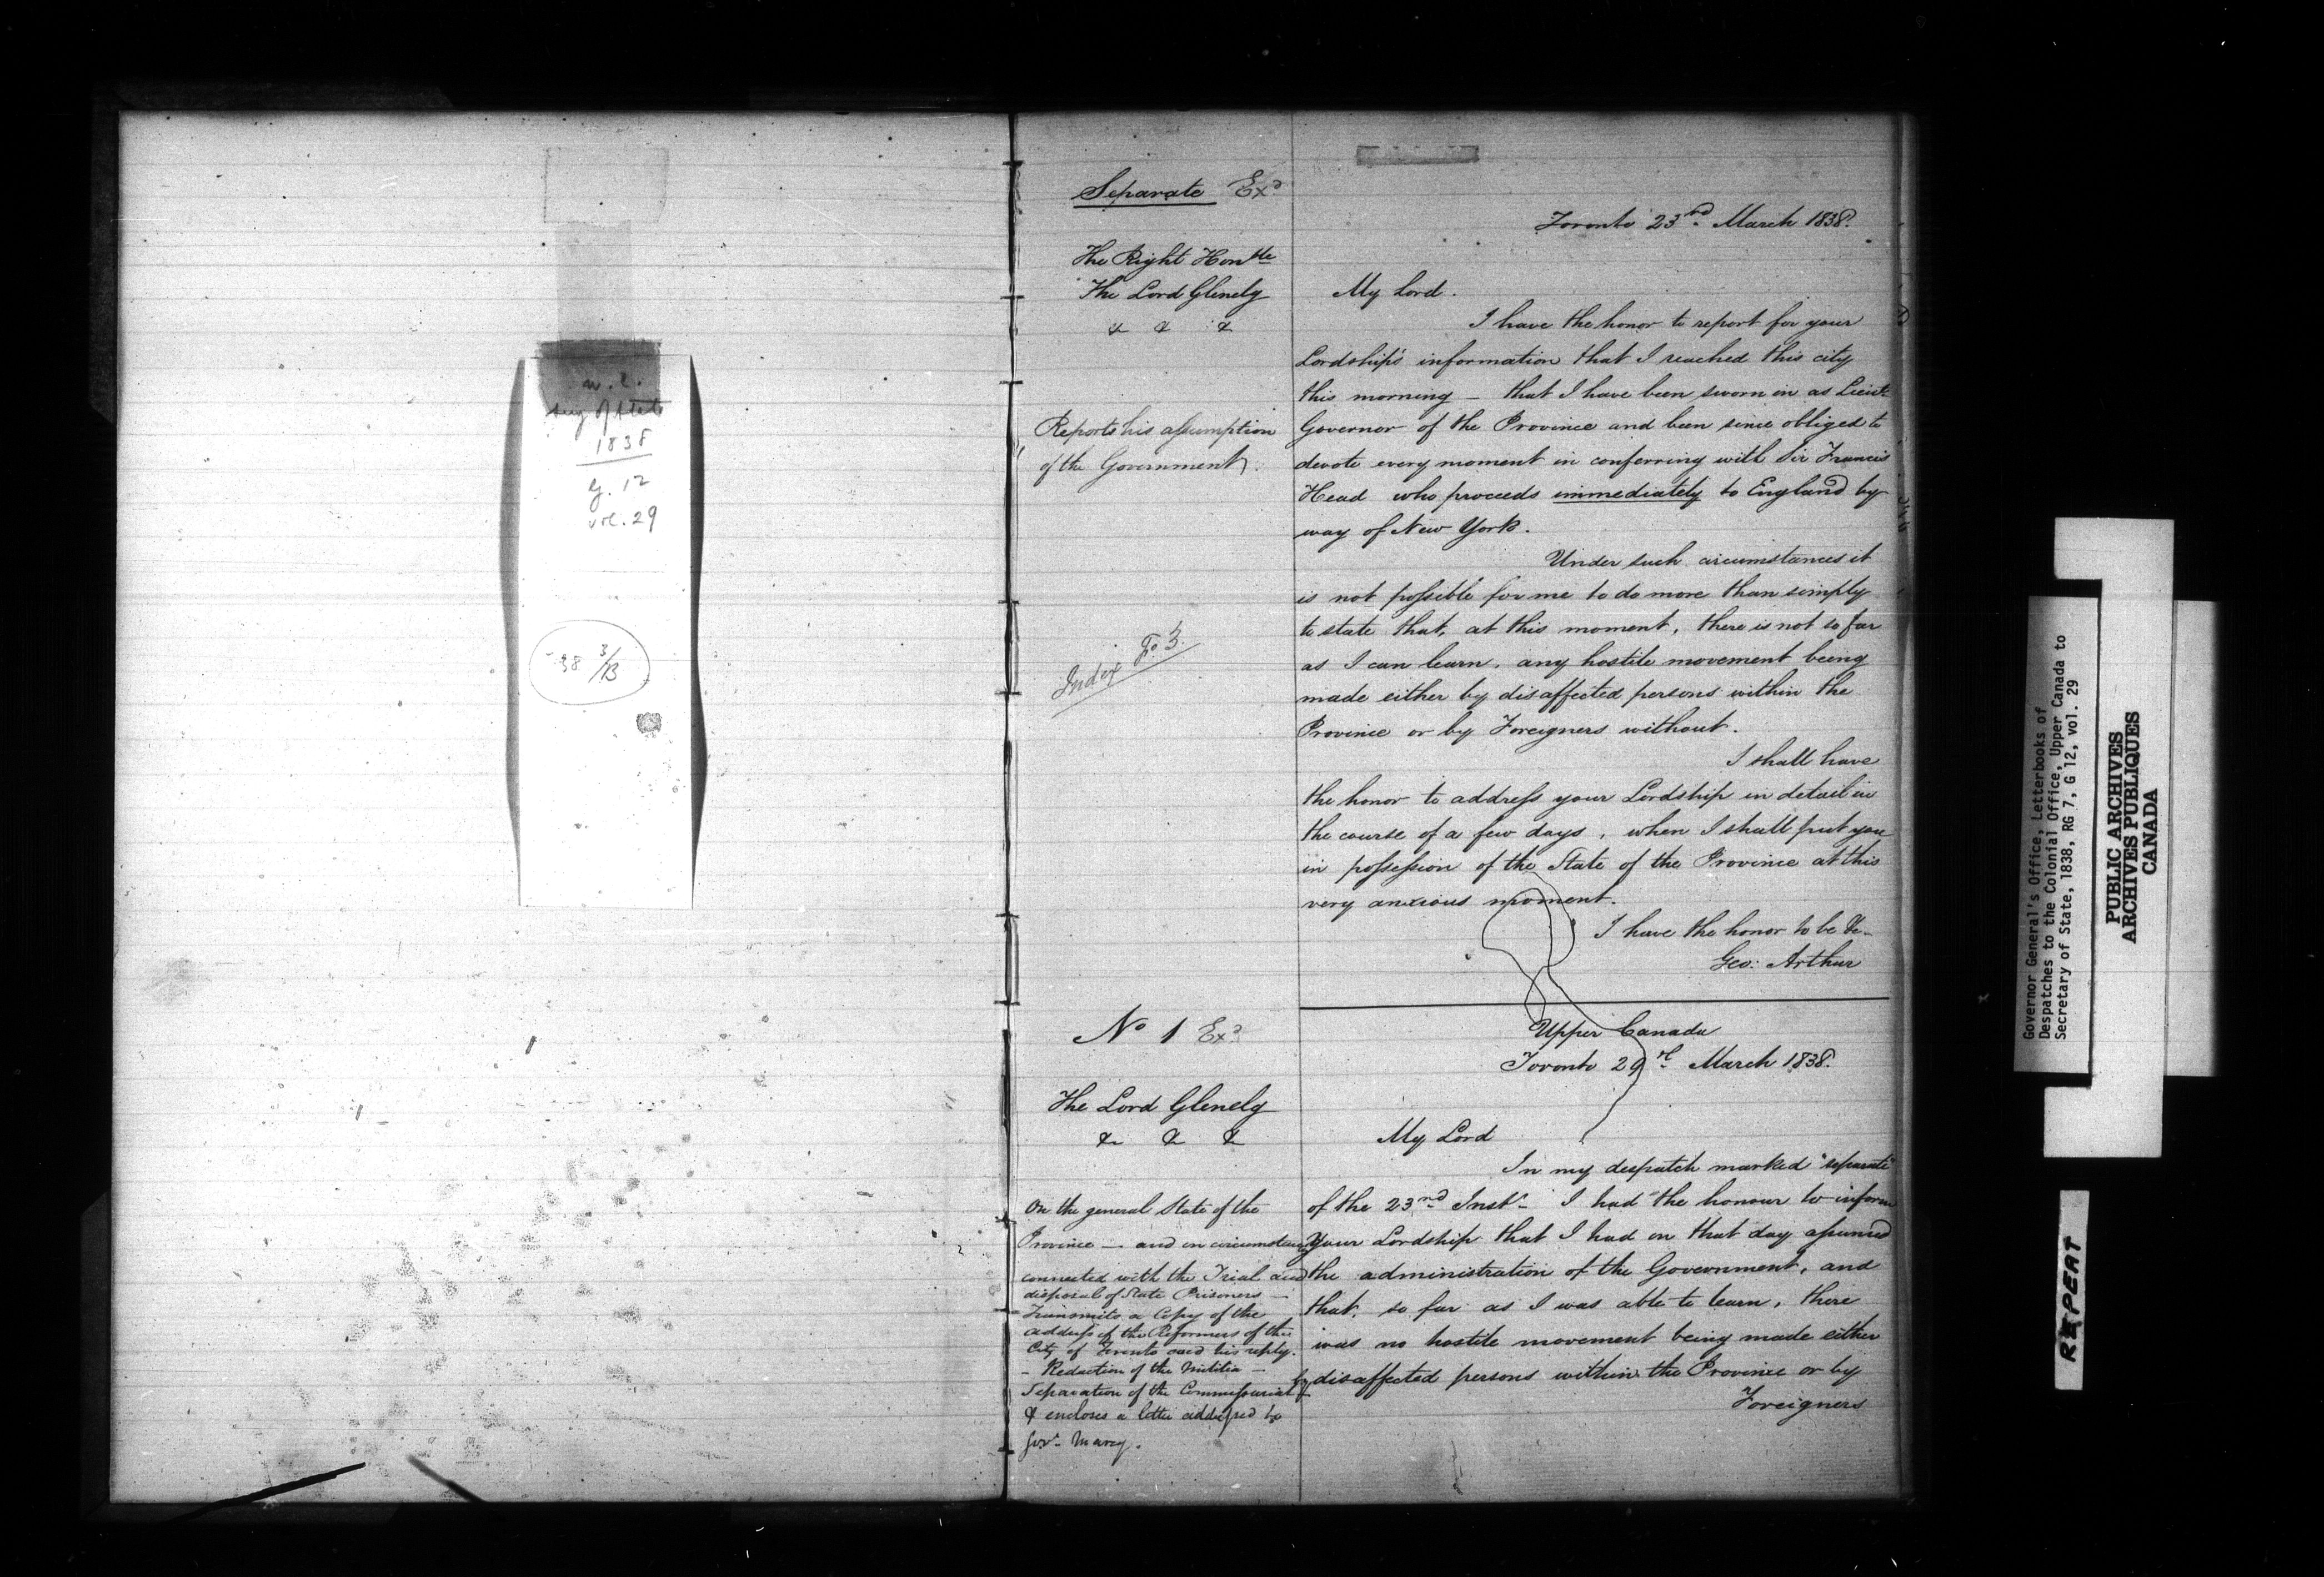 1838
G. 12
vol. 29
Separate Exd
The Right Honble
The Lord Glenelg
& & &
Reports his assumption
of the Government.
Index Fo. 3.
Toronto 23rd March 1838.
My Lord.
I have the honor to report for your
Lordship's information that I reached this city
this morning — that I have been sworn in as Lieut
Governor of the Province and been since obliged to
devote every moment in conferring with Sir Francis
Head who proceeds immediately to England by
way of New York.
Under such circumstances it
is not possible for me to do more than simply
to state that, at this moment, there is not so far
as I can learn, any hostile movement being
made either by disaffected persons within the
Province or by Foreigners without.
I shall have
the honor to address your Lordship in detail in
the course of a few days, when I shall put you
in possession of the State of the Province at this
very anxious moment.
I have the honor to be &c.
Geo: Arthur
No 1 Exd
The Lord Glenelg
& & &
On the general State of the
Province — and on circumstances
connected with the Trial and
disposal of State Prisoners —
Transmits a Copy of the
address of the Reformers of the
City of Toronto and his reply.
- Reduction of the Militia —
Separation of the Commissariat
& encloses a letter addressed to
Govr Marcy.
Upper Canada
Toronto 29th March 1838.
My Lord
In my despatch marked "separate"
of the 23rd Inst I had the honour to inform
Your Lordship that I had on that day assumed
the administration of the Government, and
that, so far as I was able to learn, there
was no hostile movement being made either
by disaffected persons within the Province or by
Foreigners
Governor General's Office, Letterbooks of
Despatches to the Colonial Office, Upper Canada to
Secretary of State, 1838, RG 7, G 12, vol. 29
PUBLIC ARCHIVES
ARCHIVES PUBLIQUES
CANADA
REPEAT